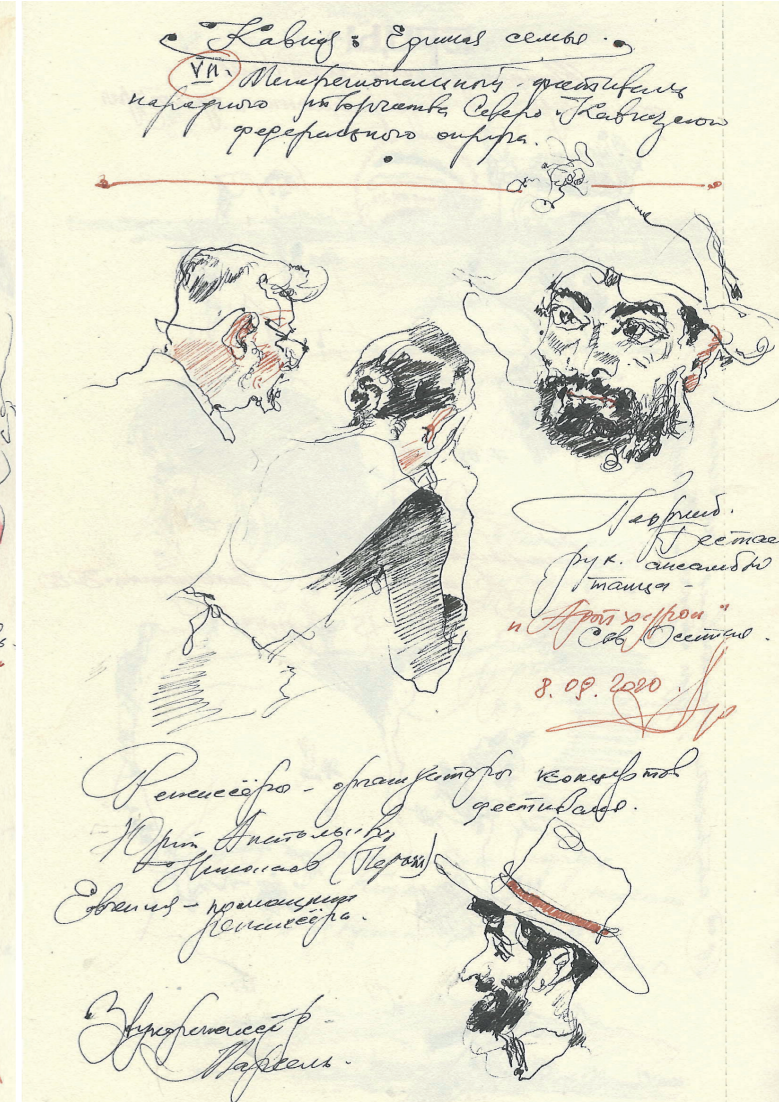 Кавказ: Единая семья.
VII. Межрегиональный фестиваль
народного творчества Северо-Кавказского
федерального округа.
Бестае
рук. ансамбля
танца -
" "
Сев. Осетия.
8.09.2020
Режиссёры - организаторы концертов
фестиваля.
Юрий Анатольевич
Николаев
Евгения - помощник
режиссёра.
Звукорежиссёр -
Марсель.